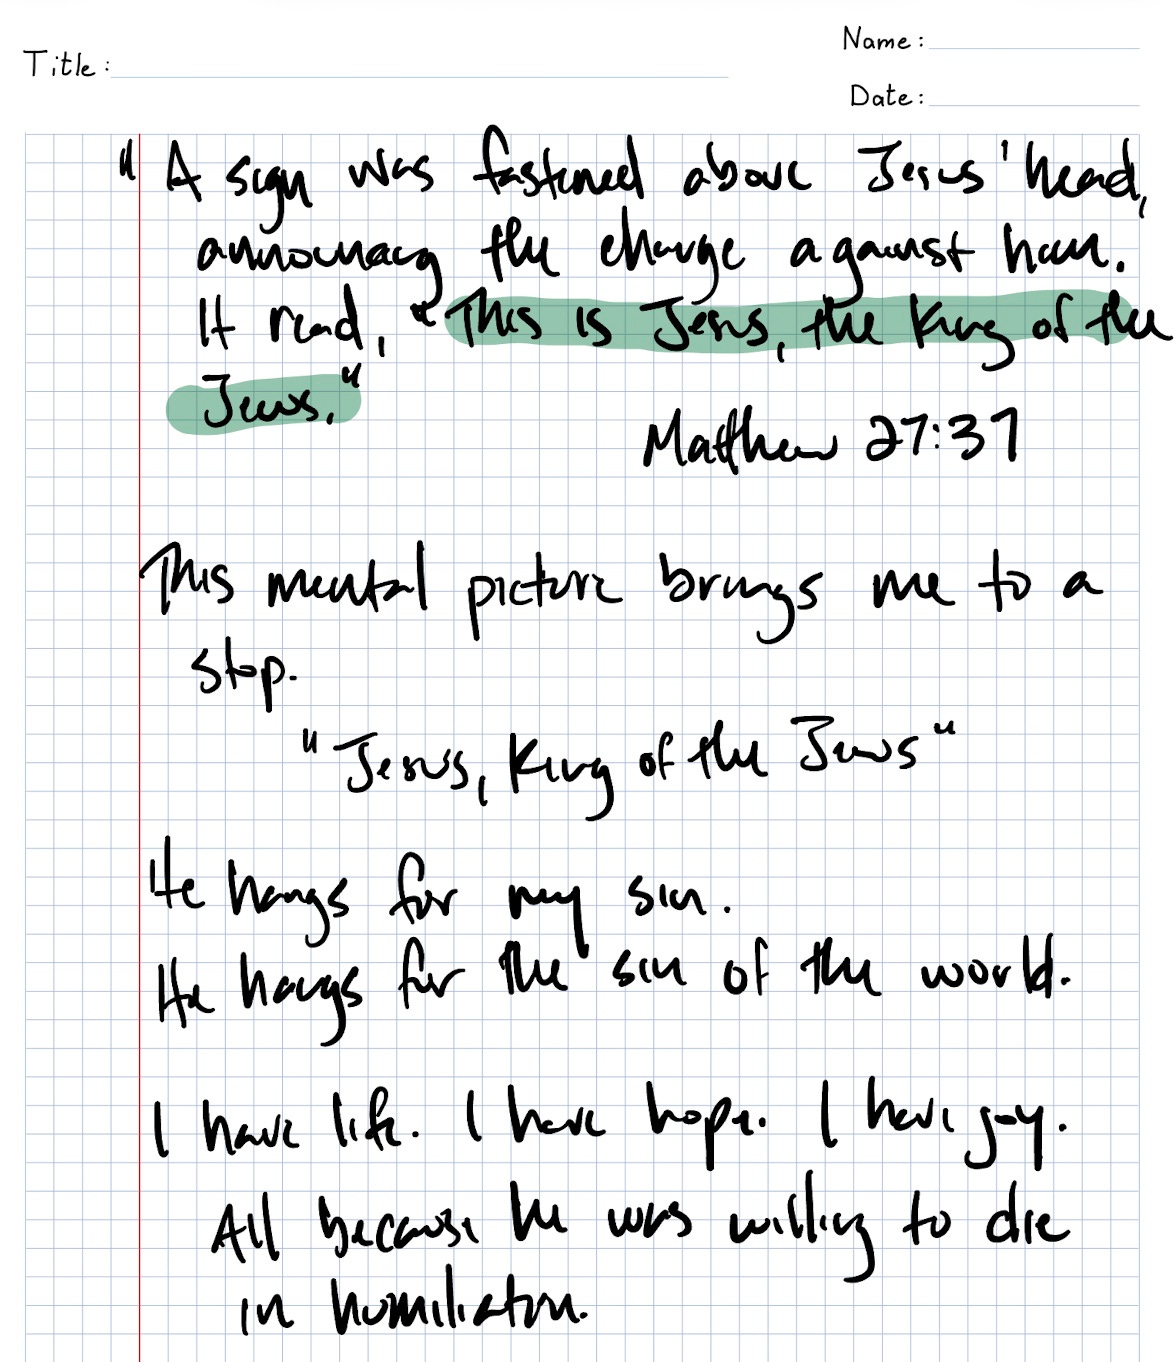 Name:
Title:
Date:
" A sign was fastened above Jesus' head,
announcing the charge against him.
It read, "This is Jesus, the King of the
Jews."
Matthew 27:37
This mental picture brings me to a
stop.
"Jesus, King of the Jews"
He hangs for my sin.
He hangs for the sin of the world.
I have life. I have hope. I have joy.
All because he was willing to die
in humiliation.